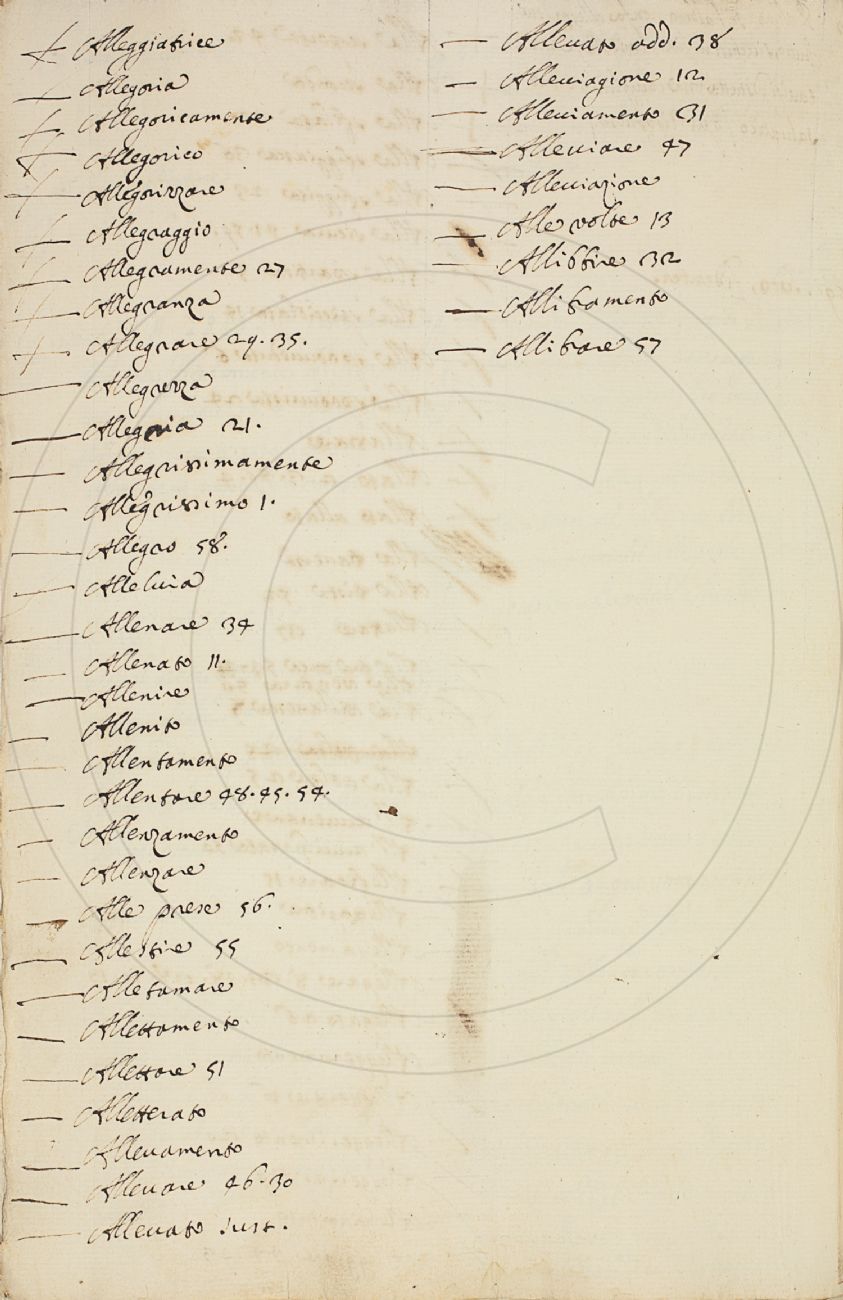 Alleggiatrice
Allegoria
Allegoricamente
Allegorico
Allegorizzare
Allegraggio
Allegramente 27
Allegranza
Allegrare 29. 35.
Allegrezza
Allegria 21.
Allegrissimamente
Allegrissimo 1.
Allegro 58.
Alleluia
Allenare 34
Allenato 11.
Allenire
Allenito
Allentamento
Allentare 48. 45. 54.
Allenzamento
Allenzare
Alle prese 56.
Allestire 55
Alletamare
Allettamento
Allettare 51
Alletterato
Alleuamento
Alleuare 46. 30
Alleuato sust.
Alleuato add. 38
Alleuiagione 12
Alleuiamento 31
Alleuiare 47
Alleuiazione
Alle volte 13
Allibbire 32
Allibramento
Allibrare 57